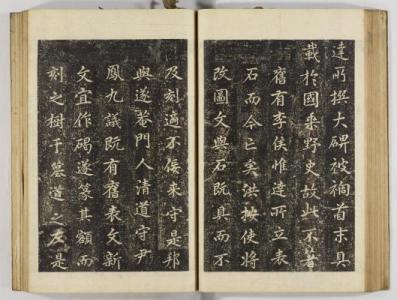 達所撰大碑被禍首末具
載於國乘野史故此不著
舊有李侯惟達所立表
石而今已矣洪按使將
改圖文與石既具而不
及刻適不佞来守是邦
與遂菴門人清道守尹
鳳九議既有舊表文新
文宜作碣遂篆其額而
刻之樹于墓道之左是